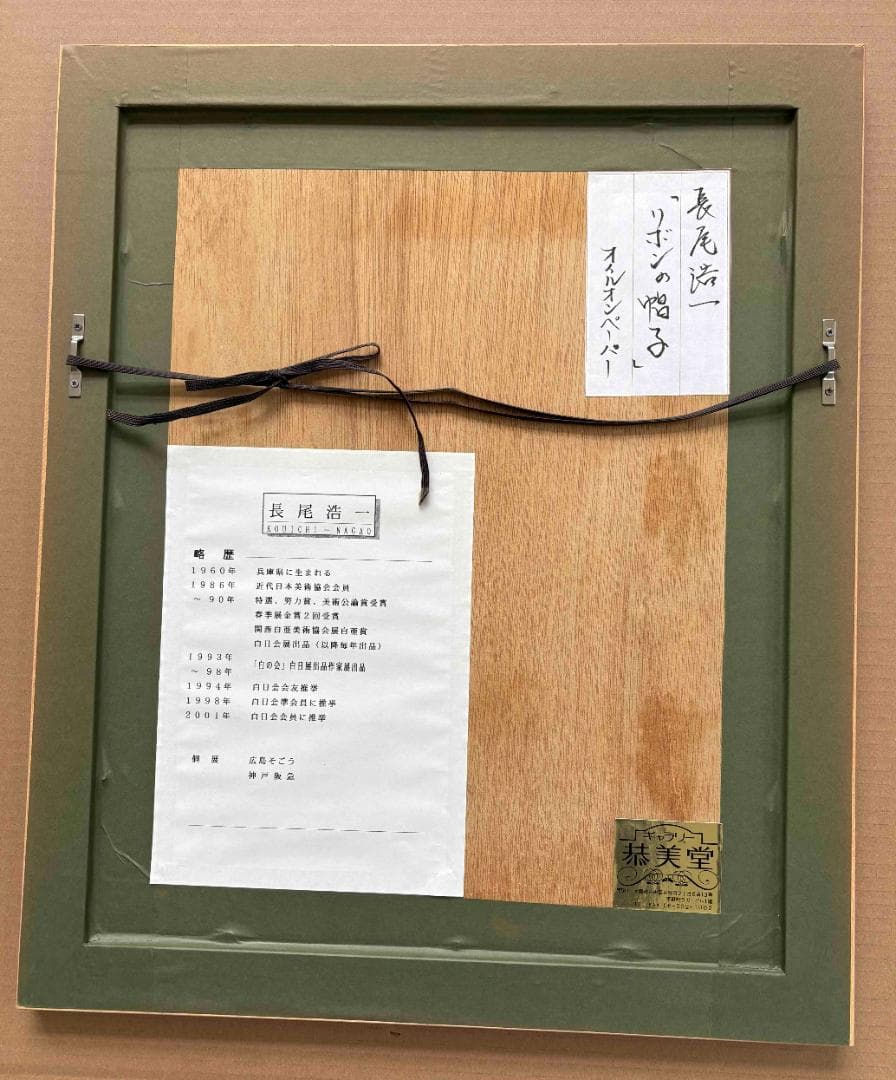 長尾浩一
「リボンの帽子」
オイルオンペーパー
長尾浩一
KOUICHI-NAGAO
略歴
1960年 兵庫県に生まれる
1986年 近代日本美術協会会員
～90年 特選、努力賞、美術公論賞受賞
春季展金賞2回受賞
関西白亜美術協会展白亜賞
白日会展出品（以降毎年出品）
1993年
～98年 「白の会」白日展出品作家展出品
1994年 白日会会友推挙
1998年 白日会準会員に推挙
2001年 白日会会員に推挙
個展 広島そごう
神戸阪急
ギャラリー
恭美堂